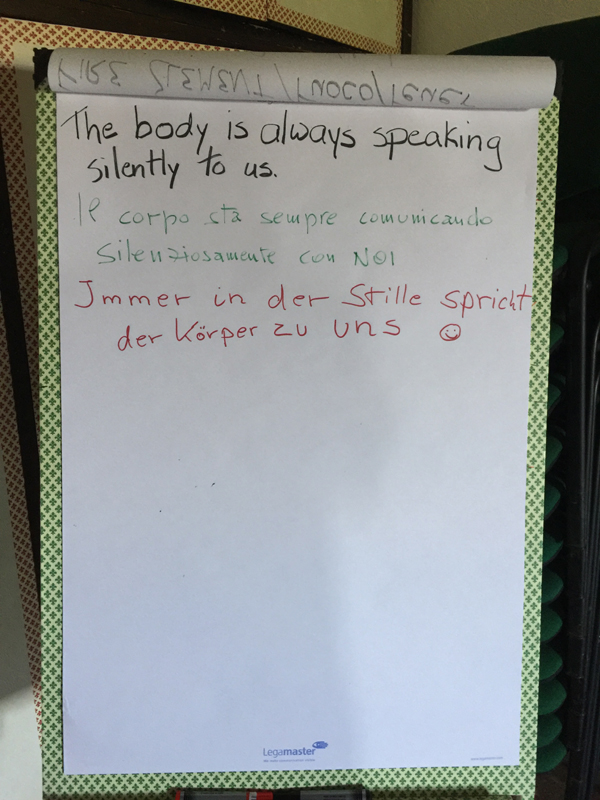 The body is always speaking
silently to us.
Il corpo sta sempre comunicando
silenziosamente con NOI
Immer in der Stille spricht
der Körper zu uns
Legamaster